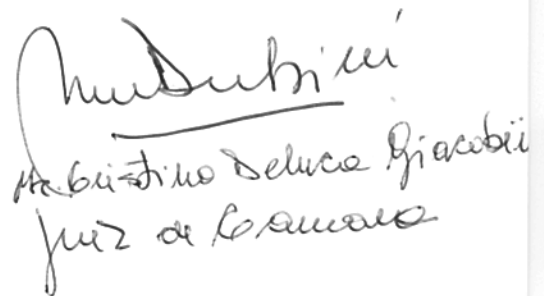 Ma. Cristina Deluca Giacobii
Juez de Camara